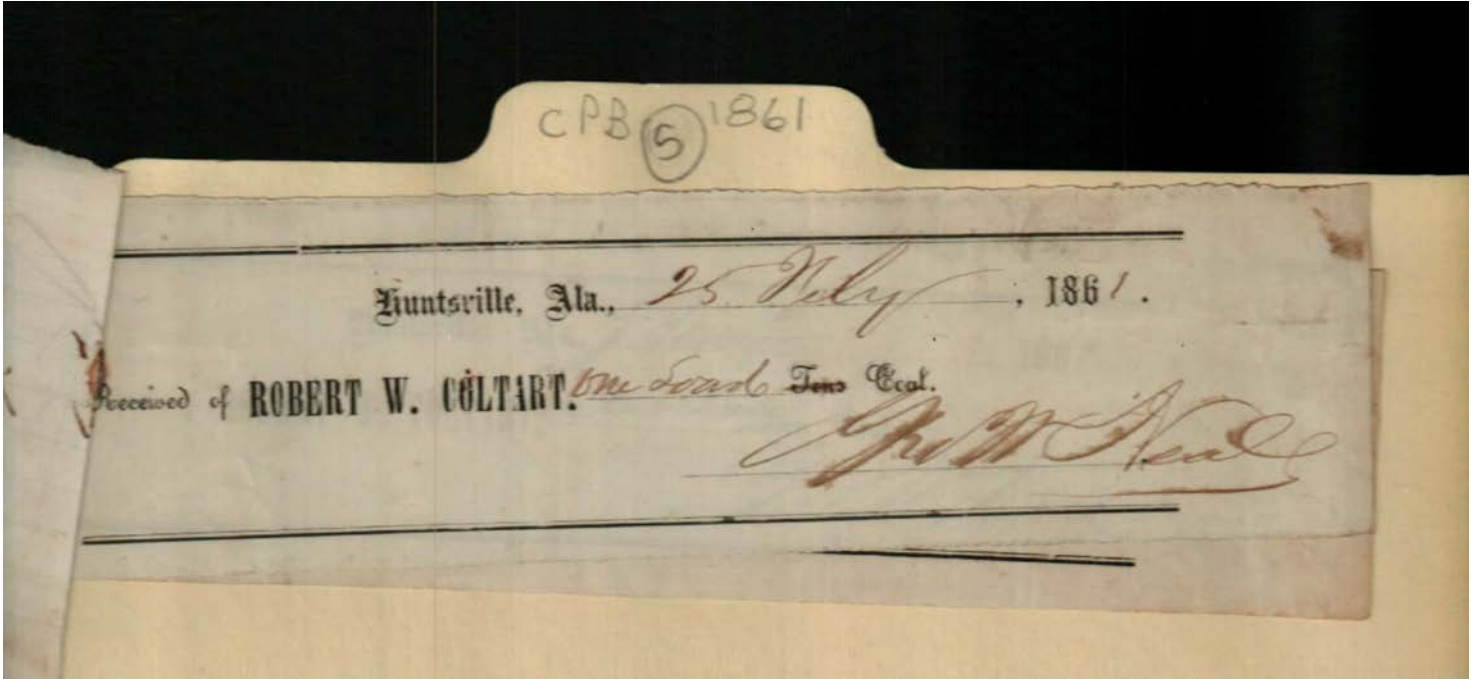 CPB 5 1861
Huntsville, Ala., 25 Feby , 1861.
Received of ROBERT W. COLTART. One Load Tons Coal.
Geo W Neal